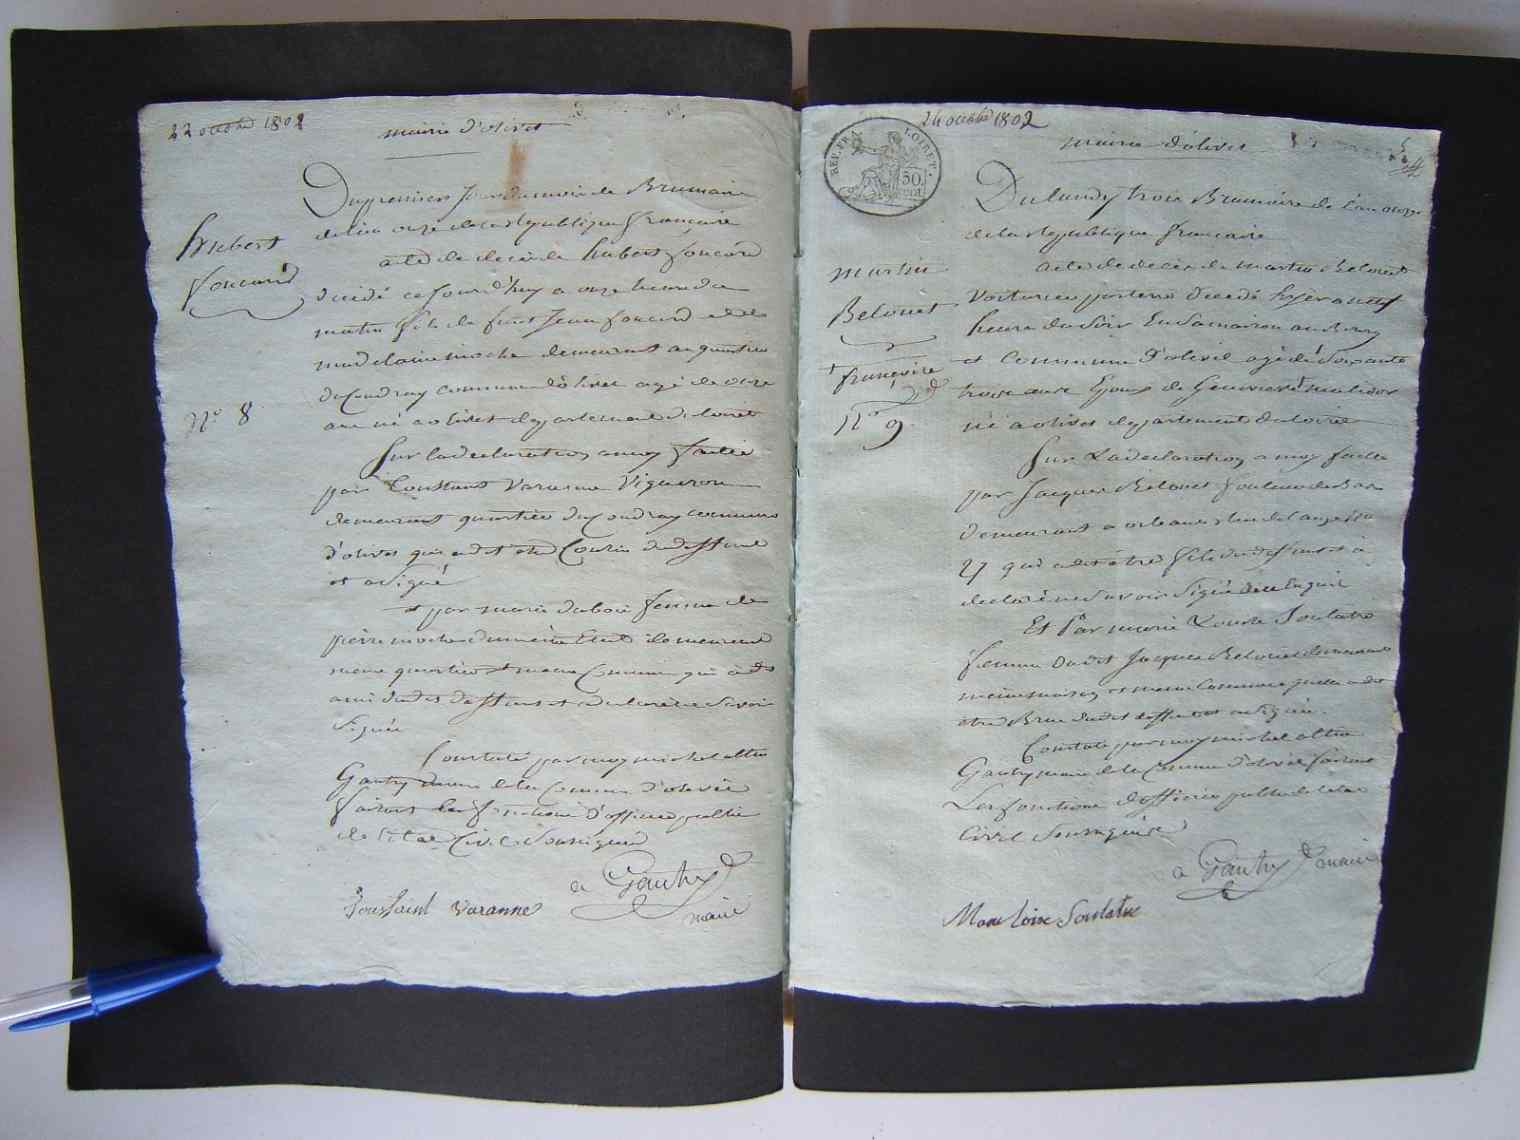 22 octobre 1802
mairie d'olivet
Du premier jour du mois de Brumaire
de l'an onze de la république française
hubert
foucard
acte de décès de hubert foucard
décédé cejourd'huy a onze heure du
matin fils de feu Jean foucard et de
madelaine moche demeurant au quartier
du Coudray commune d'olivet agé de onze
ans né a olivet département du loiret
N° 8
Sur la déclaration a moy faitte
par Toussaint Varanne Vigneron
demeurant quartier du Coudray commune
d'olivet qui a dit etre Cousin du deffunt
et a signé
et par marie dubois femme de
pierre moche demeurant
meme quartier et meme Commune qui a dit
amie dudit deffunt et a declaré ne savoir
signée
Constaté par moy michel altin
Gautry maire de la Commune d'olivet
faisant les fonctions d'officier public
de l'état Civil Soussigné
a Gautry
maire
Toussaint Varanne
24 octobre 1802
mairie d'olivet
REP. FRA. LOIRET.
50
Du lundy trois Brumaire de l'an onze
de la République française
martin
Belouet
française
N° 9
acte de décès de martin Belouet
Voiturier par terre décédé hyer a neuf
heure du soir En sa maison au Bourg
et Commune d'olivet agé de Soixante
trois ans Epoux de Genevieve
né a olivet département du loiret
Sur La déclaration a moy faitte
par Jacques Belouet fouleur de Bas
demeurant a orleans
27 qui a dit être fils du deffunt et a
declaré ne Savoir Signé de ce Enquis
Et Par marie Louise Soulatre
femme dudit Jacques Belouet demeurant
meme maison et meme Commune qui a dit
etre Brue dudit deffunt et a signée.
Constaté par moy michel altin
Gautry maire de la Commune d'olivet faisant
Les fonctions d'officier public de l'état
Civil Soussignée
a Gautry maire
Marie Loise Soulatre